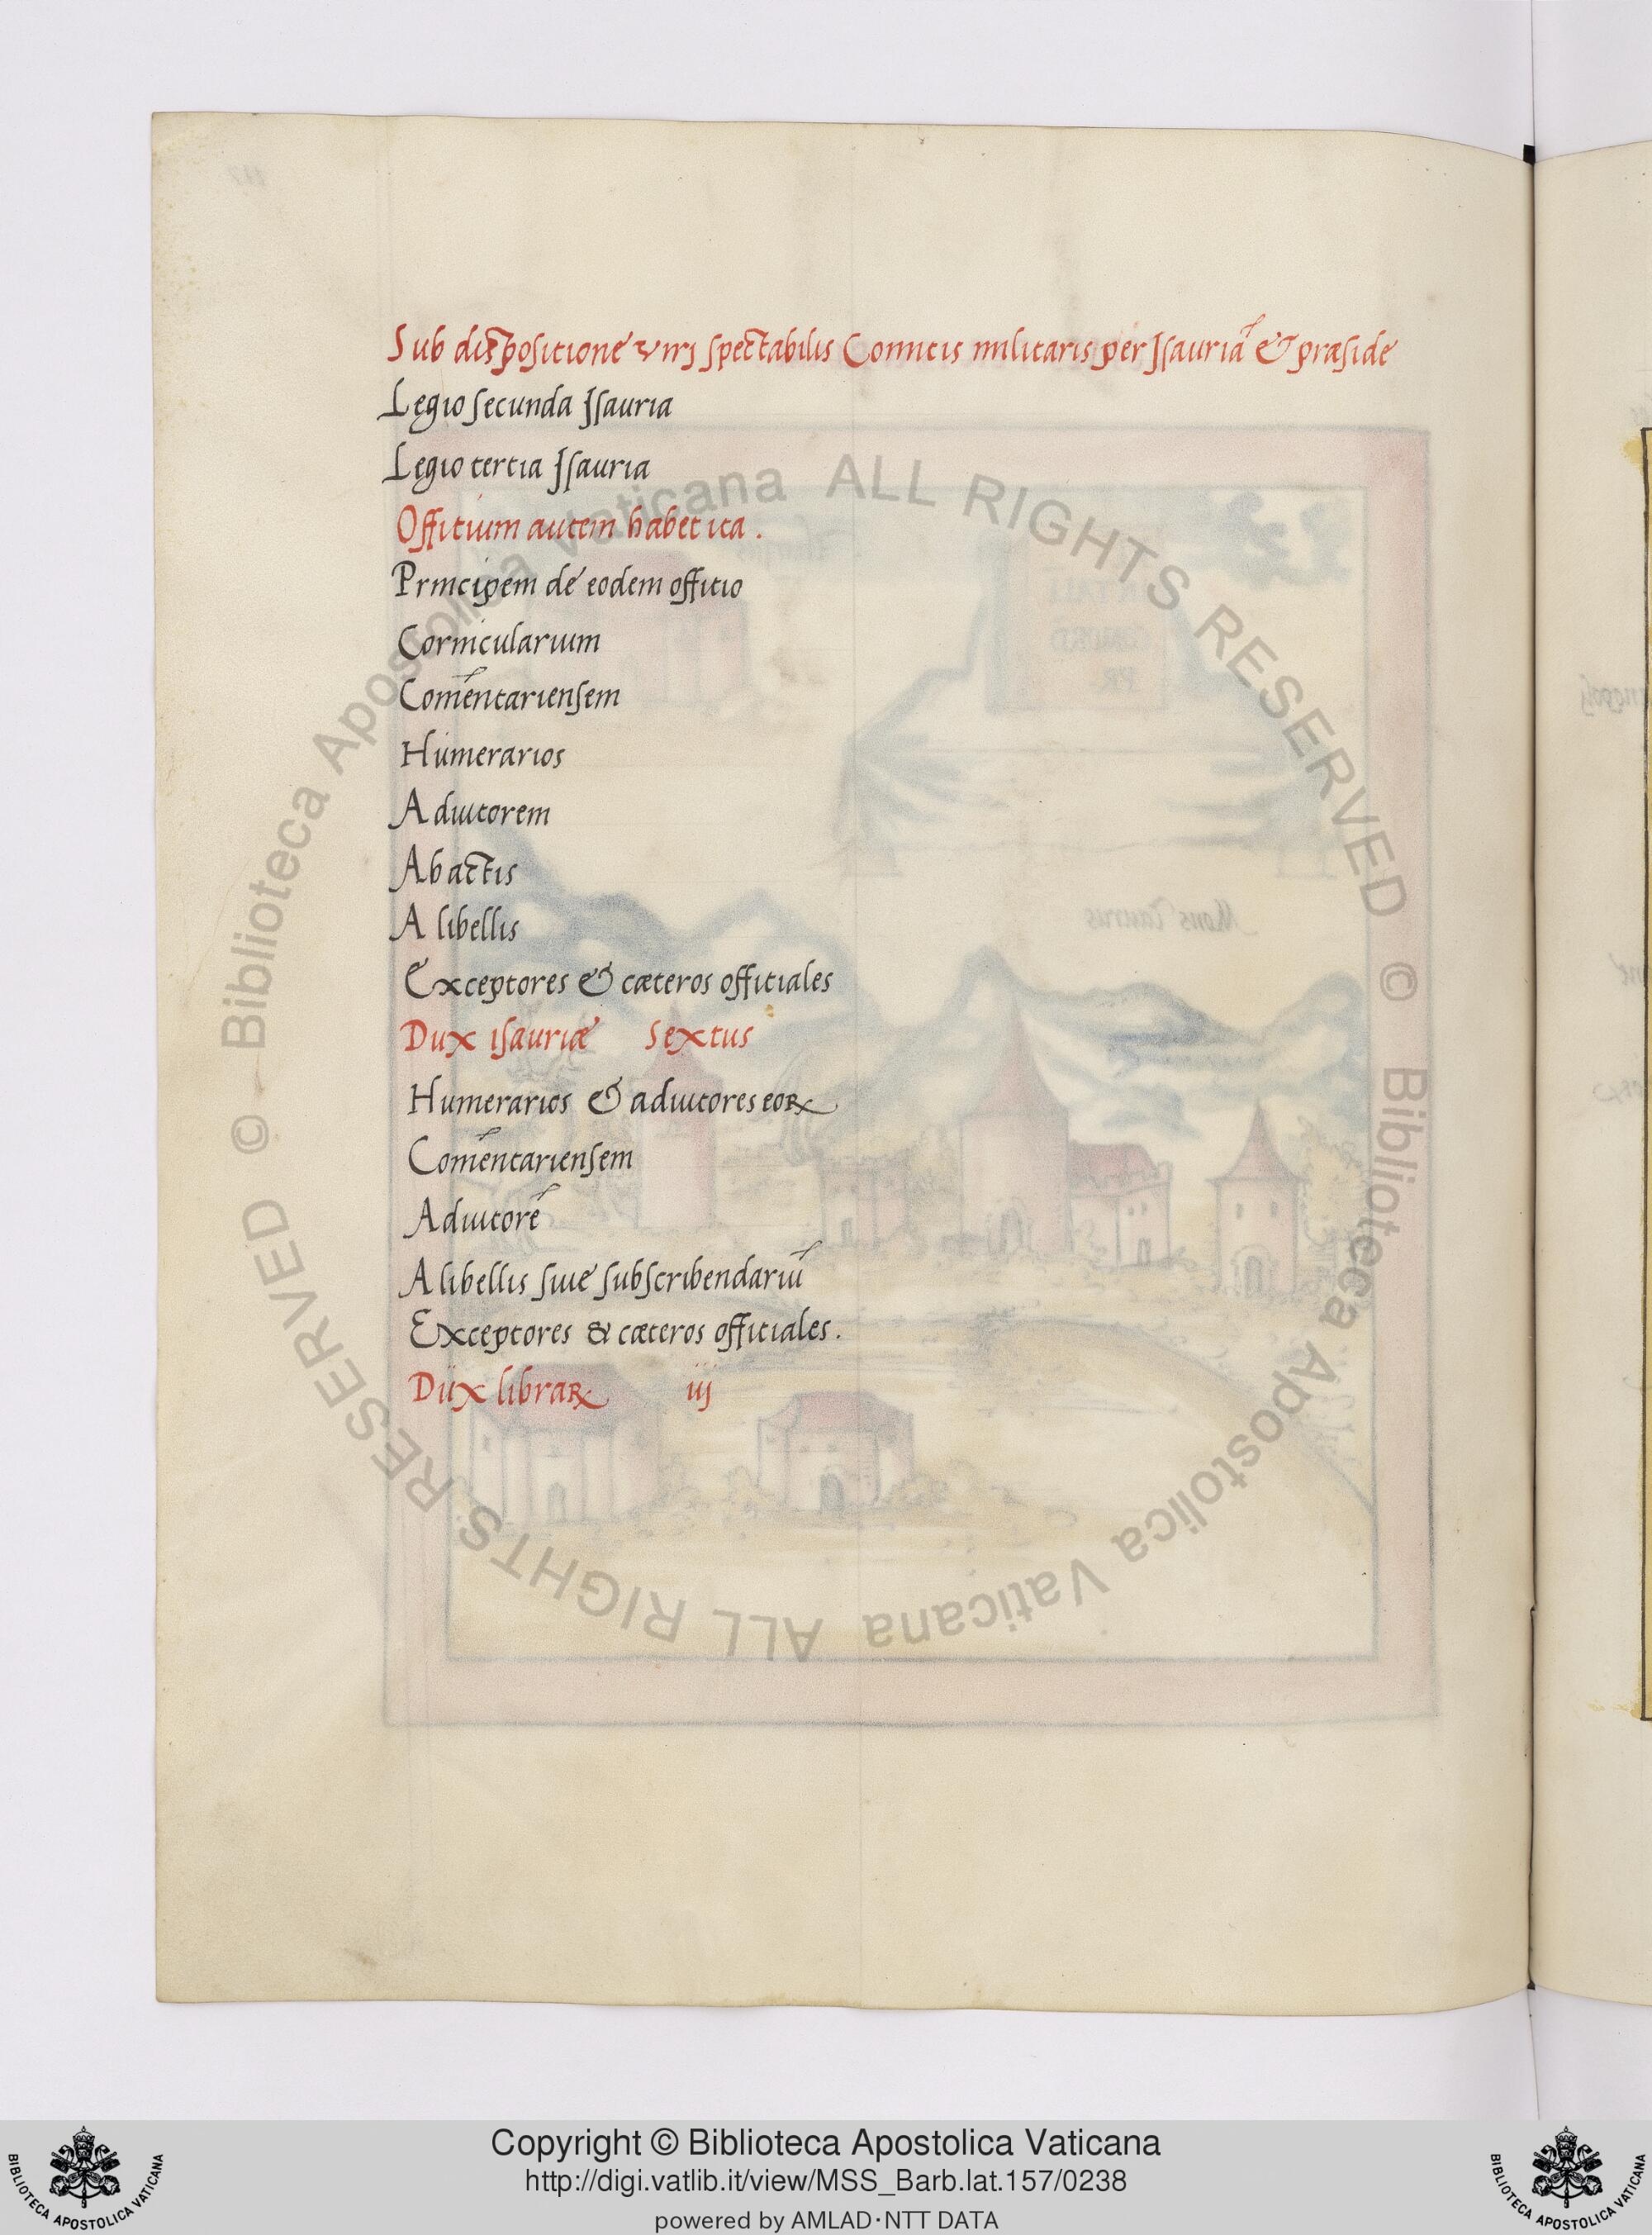 Sub dispositione virj spectabilis Comitis militaris per Isauriā & præside
Legio secunda Isauria
Legio tertia Isauria
Offitium autem habet ita .
Principem de eodem offitio
Cornicularium
Com̄entariensem
Humerarios
Adiutorem
Ab actis
A libellis
Exceptores & cæteros offitiales
Dux isauriæ Sextus
Humerarios & adiutores eoꝝ
Com̄entariensem
Adiutorē
A libellis siue subscribendariū
Exceptores & cæteros offitiales .
Dux libraꝝ iij
Mons Taurus
© Biblioteca Apostolica Vaticana ALL RIGHTS RESERVED
© Biblioteca Apostolica Vaticana ALL RIGHTS RESERVED
Copyright © Biblioteca Apostolica Vaticana
http://digi.vatlib.it/view/MSS_Barb.lat.157/0238
powered by AMLAD·NTT DATA
BIBLIOTECA APOSTOLICA VATICANA
BIBLIOTECA APOSTOLICA VATICANA